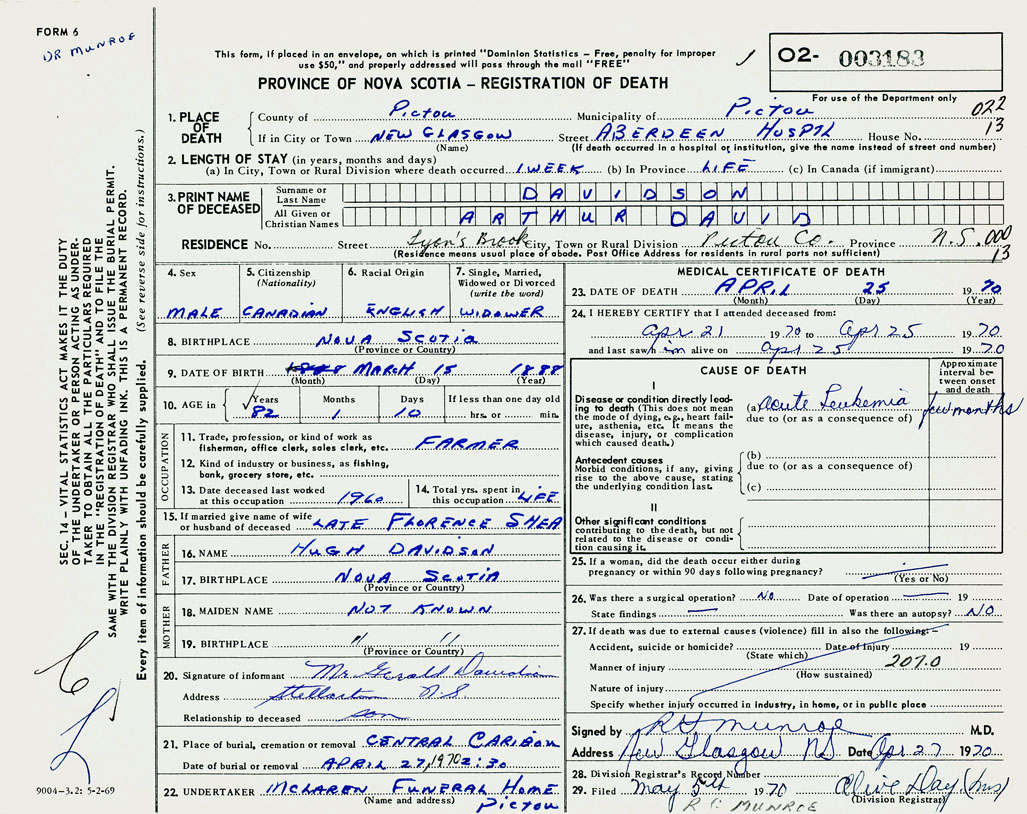 FORM 6
DR MUNROE
This form, if placed in an envelope, on which is printed "Dominion Statistics – Free, penalty for improper
use $50," and properly addressed will pass through the mail "FREE"
02- 003183
PROVINCE OF NOVA SCOTIA – REGISTRATION OF DEATH
For use of the Department only
022
13
1. PLACE OF DEATH
County of Pictou Municipality of Pictou
If in City or Town NEW GLASGOW Street ABERDEEN HOSPTL House No.
(Name) (If death occurred in a hospital or institution, give the name instead of street and number)
2. LENGTH OF STAY (in years, months and days)
(a) In City, Town or Rural Division where death occurred 1 WEEK (b) In Province LIFE (c) In Canada (if immigrant)
3. PRINT NAME OF DECEASED
Surname or Last Name DAVIDSON
All Given or Christian Names ARTHUR DAVID
RESIDENCE No. Street Lyon's Brook City, Town or Rural Division Pictou Co. Province N.S. 000
13
(Residence means usual place of abode. Post Office Address for residents in rural parts not sufficient)
4. Sex
MALE
5. Citizenship
(Nationality)
CANADIAN
6. Racial Origin
ENGLISH
7. Single, Married,
Widowed or Divorced
(write the word)
WIDOWER
8. BIRTHPLACE NOVA SCOTIA
(Province or Country)
9. DATE OF BIRTH MARCH 15 1888
(Month) (Day) (Year)
10. AGE in
Years Months Days If less than one day old
✓ 82 1 10 hrs. or min.
OCCUPATION
11. Trade, profession, or kind of work as
fisherman, office clerk, sales clerk, etc. FARMER
12. Kind of industry or business, as fishing,
bank, grocery store, etc.
13. Date deceased last worked
at this occupation 1960
14. Total yrs. spent in
this occupation LIFE
15. If married give name of wife
or husband of deceased LATE FLORENCE SHEA
FATHER
16. NAME HUGH DAVIDSON
17. BIRTHPLACE NOVA SCOTIA
(Province or Country)
MOTHER
18. MAIDEN NAME NOT KNOWN
19. BIRTHPLACE " "
(Province or Country)
20. Signature of informant Mr Gerald Davidson
Address Stellarton N S
Relationship to deceased son
21. Place of burial, cremation or removal CENTRAL CARIBOU
Date of burial or removal APRIL 27, 1970 2:30
22. UNDERTAKER MCLAREN FUNERAL HOME
(Name and address) PICTOU
MEDICAL CERTIFICATE OF DEATH
23. DATE OF DEATH APRIL 25 1970
(Month) (Day) (Year)
24. I HEREBY CERTIFY that I attended deceased from:
Apr 21 1970 to Apr 25 1970
and last saw him alive on Apr 25 1970
CAUSE OF DEATH
Approximate
interval be-
tween onset
and death
I
Disease or condition directly lead-
ing to death (This does not
mean the mode of dying, e.g., heart fail-
ure, asthenia, etc. It means the
disease, injury, or complication
which caused death.)
(a) Acute Leukemia few months
due to (or as a consequence of)
Antecedent causes
Morbid conditions, if any, giving
rise to the above cause, stating
the underlying condition last.
(b)
due to (or as a consequence of)
(c)
II
Other significant conditions
contributing to the death, but not
related to the disease or condi-
tion causing it.
25. If a woman, did the death occur either during
pregnancy or within 90 days following pregnancy?
(Yes or No)
26. Was there a surgical operation? No Date of operation 19
State findings Was there an autopsy? NO
27. If death was due to external causes (violence) fill in also the following: –
Accident, suicide or homicide? Date of Injury 19
(State which) 207.0
Manner of injury
(How sustained)
Nature of injury
Specify whether injury occurred in industry, in home, or in public place
Signed by R H Munroe M.D.
Address New Glasgow NS Date Apr 27 1970
28. Division Registrar's Record Number
29. Filed May 5th 1970 Olive Day (Mrs)
(Division Registrar)
R C MUNROE
SEC. 14 – VITAL STATISTICS ACT MAKES IT THE DUTY
OF THE UNDERTAKER OR PERSON ACTING AS UNDER-
TAKER TO OBTAIN ALL THE PARTICULARS REQUIRED
IN THE "REGISTRATION OF DEATH" AND TO FILE THE
SAME WITH THE DIVISION REGISTRAR WHO SHALL ISSUE THE BURIAL PERMIT.
WRITE PLAINLY WITH UNFADING INK. THIS IS A PERMANENT RECORD.
Every item of information should be carefully supplied. (See reverse side for instructions.)
9004-3.2: 5-2-69